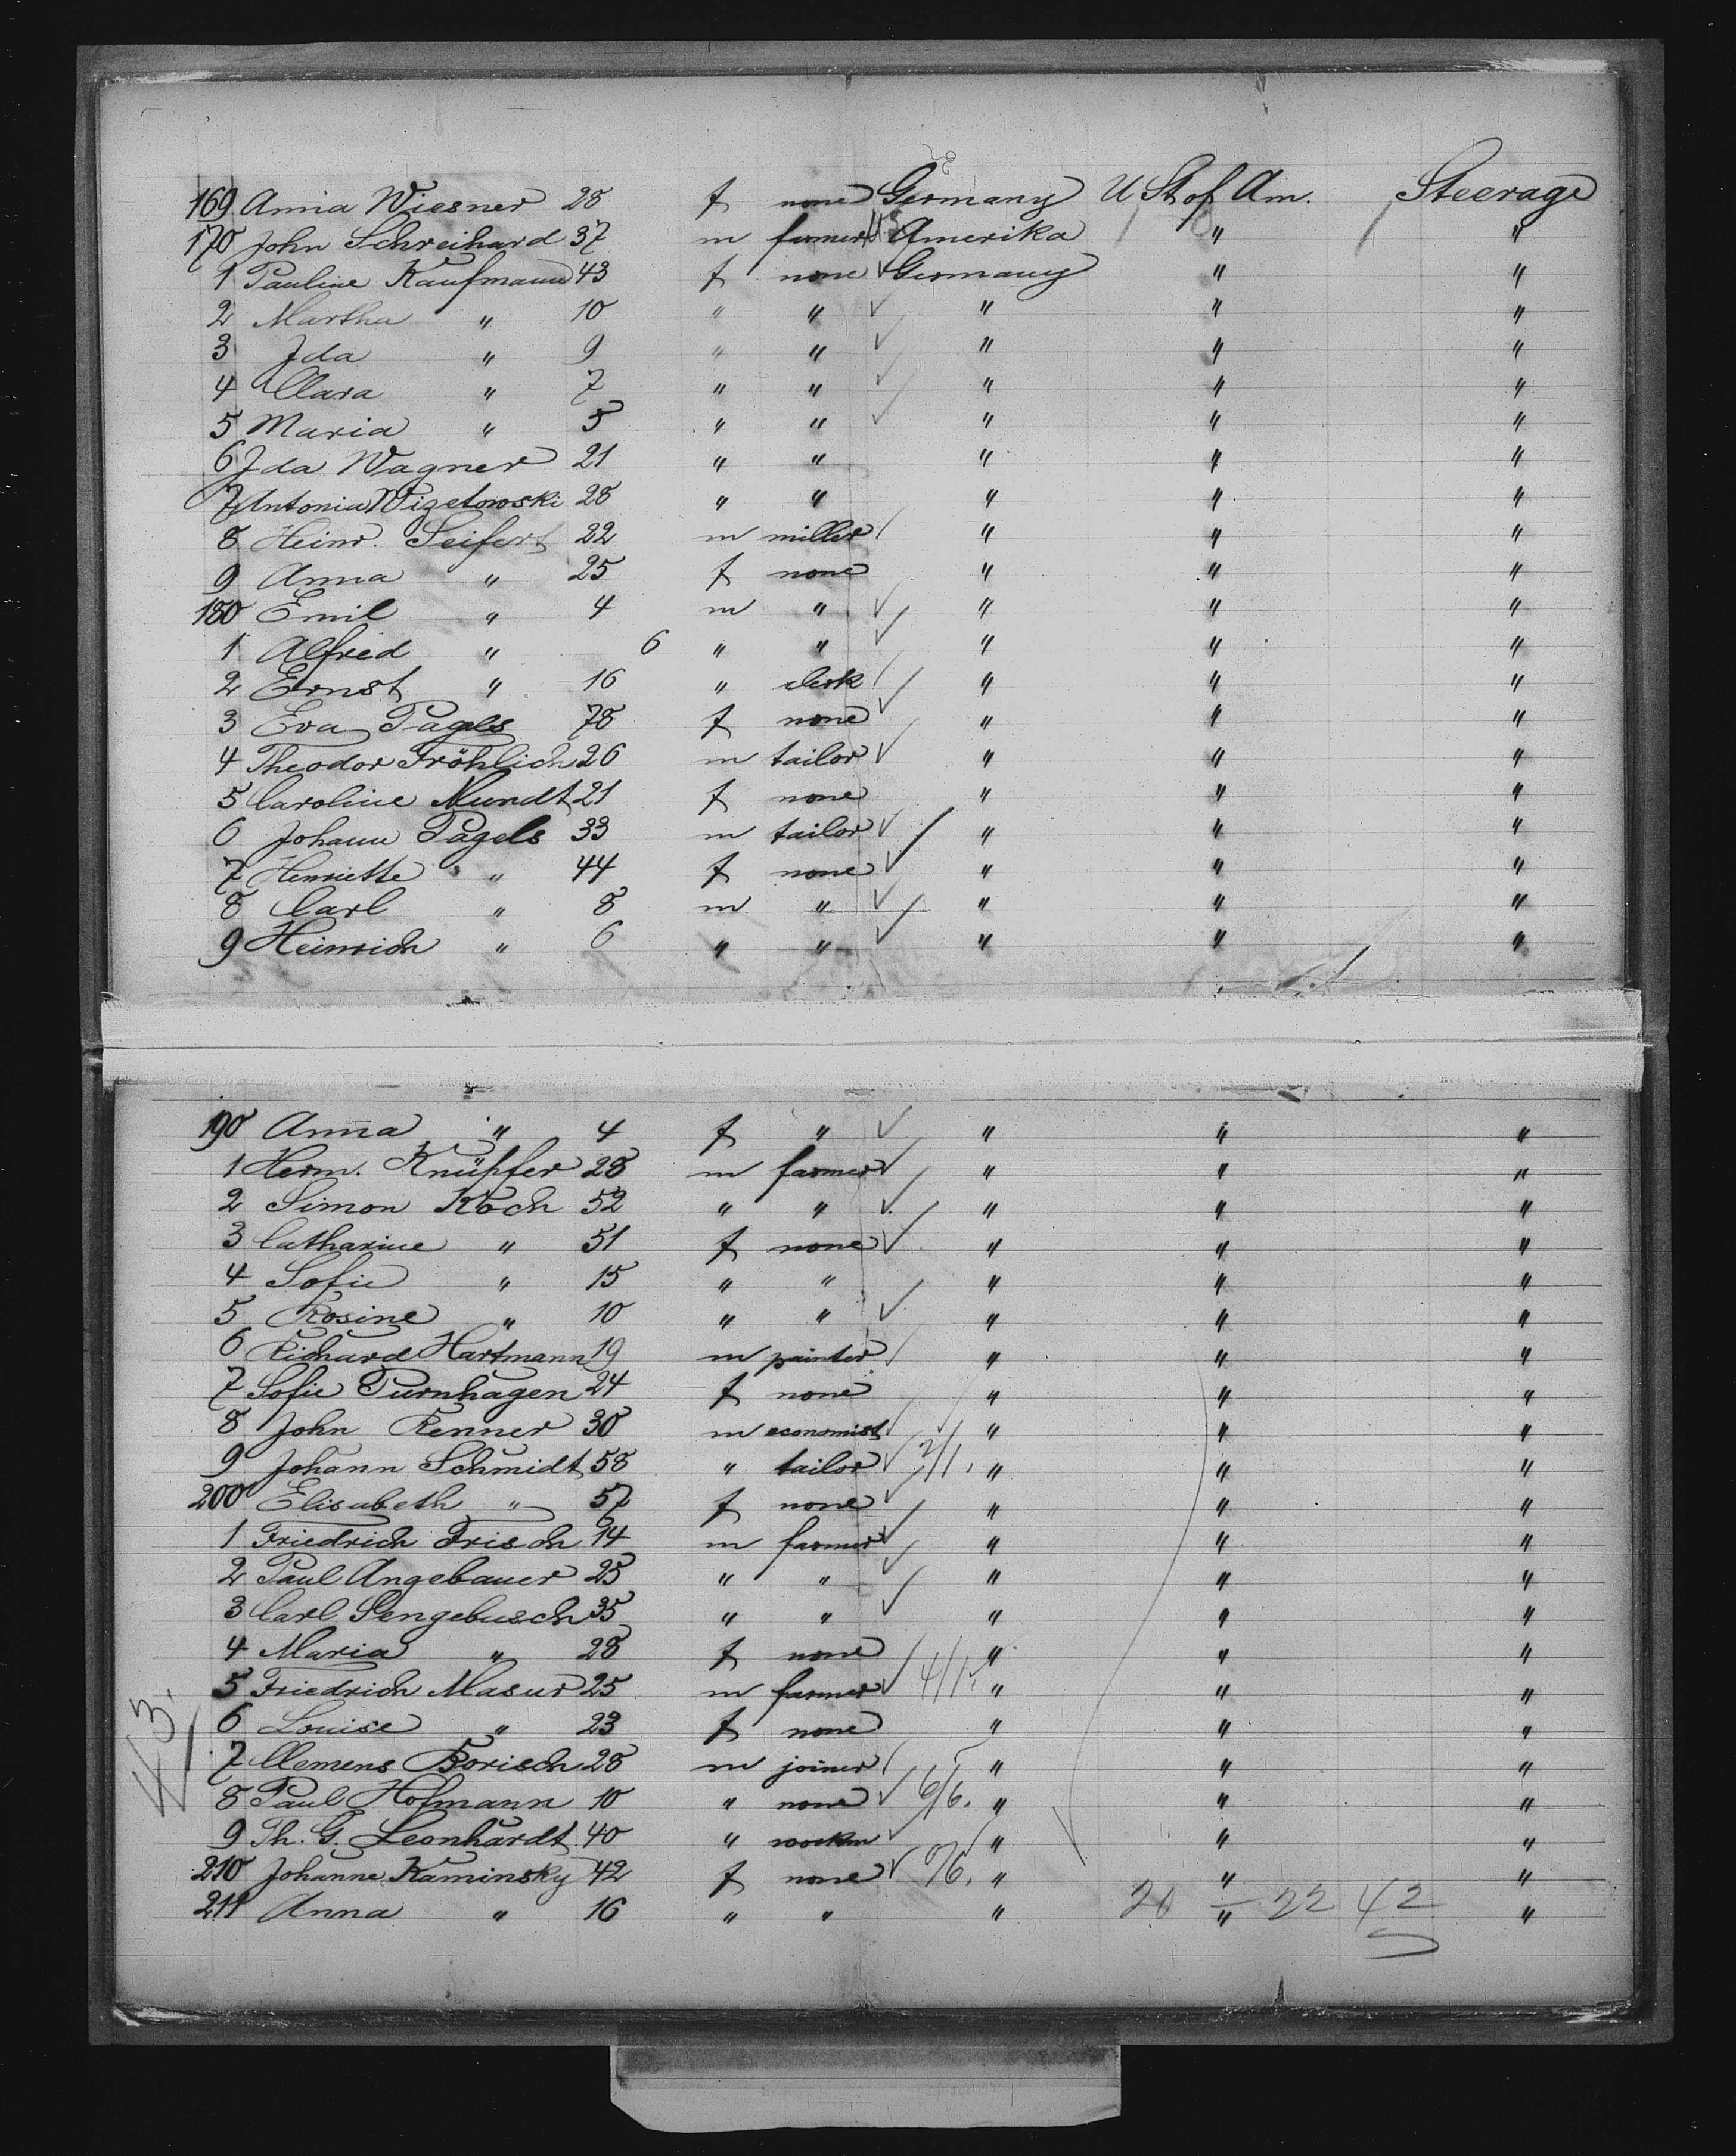 169 Anna Wiesner 28 f none Germany U St of Am. Steerage
170 John Schreihard 37 m farmer US Amerika " "
1 Pauline Kaufmann 43 f none Germany " "
2 Martha " 10 " " " " "
3 Ida " 9 " " " " "
4 Clara " 7 " " " " "
5 Maria " 5 " " " " "
6 Ida Wagner 21 " " " " "
7 Antonia Wizetowski 28 " " " " "
8 Heinr. Seifert 22 m miller " " "
9 Anna " 25 f none " " "
180 Emil " 4 m " " " "
1 Alfred " 6 " " " " "
2 Ernst " 16 " clerk " " "
3 Eva Pagels 78 f none " " "
4 Theodor Fröhlich 26 m tailor " " "
5 Caroline Mundt 21 f none " " "
6 Johann Pagels 33 m tailor " " "
7 Henriette " 44 f none " " "
8 Carl " 8 m " " " "
9 Heinrich " 6 " " " " "
190 Anna " 4 f " " " "
1 Herm. Knüpfer 28 m farmer " " "
2 Simon Koch 52 " " " " "
3 Catharine " 51 f none " " "
4 Sofie " 15 " " " " "
5 Rosine " 10 " " " " "
6 Richard Hartmann 19 m painter " " "
7 Sofie Turnhagen 24 f none " " "
8 John Renner 30 m economist " " "
9 Johann Schmidt 58 " tailor 2/1. " " "
200 Elisabeth " 57 f none " " "
1 Friedrich Frisch 14 m farmer " " "
2 Paul Angebauer 25 " " " " "
3 Carl Sengebusch 35 " " " " "
4 Maria " 28 f none " " "
5 Friedrich Masur 25 m farmer 4/1. " " "
6 Louise " 23 f none " " "
7 Clemens Borisch 28 m joiner " " "
8 Paul Hofmann 10 " none 6/6. " " "
9 Th. G. Leonhardt 40 " " " "
210 Johanne Kaminsky 42 f none " " "
211 Anna " 16 " " " " "
20 22 42